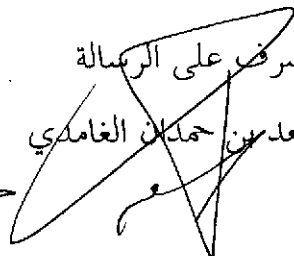 شرف على الرسالة
عد بن حمدان الغامدي